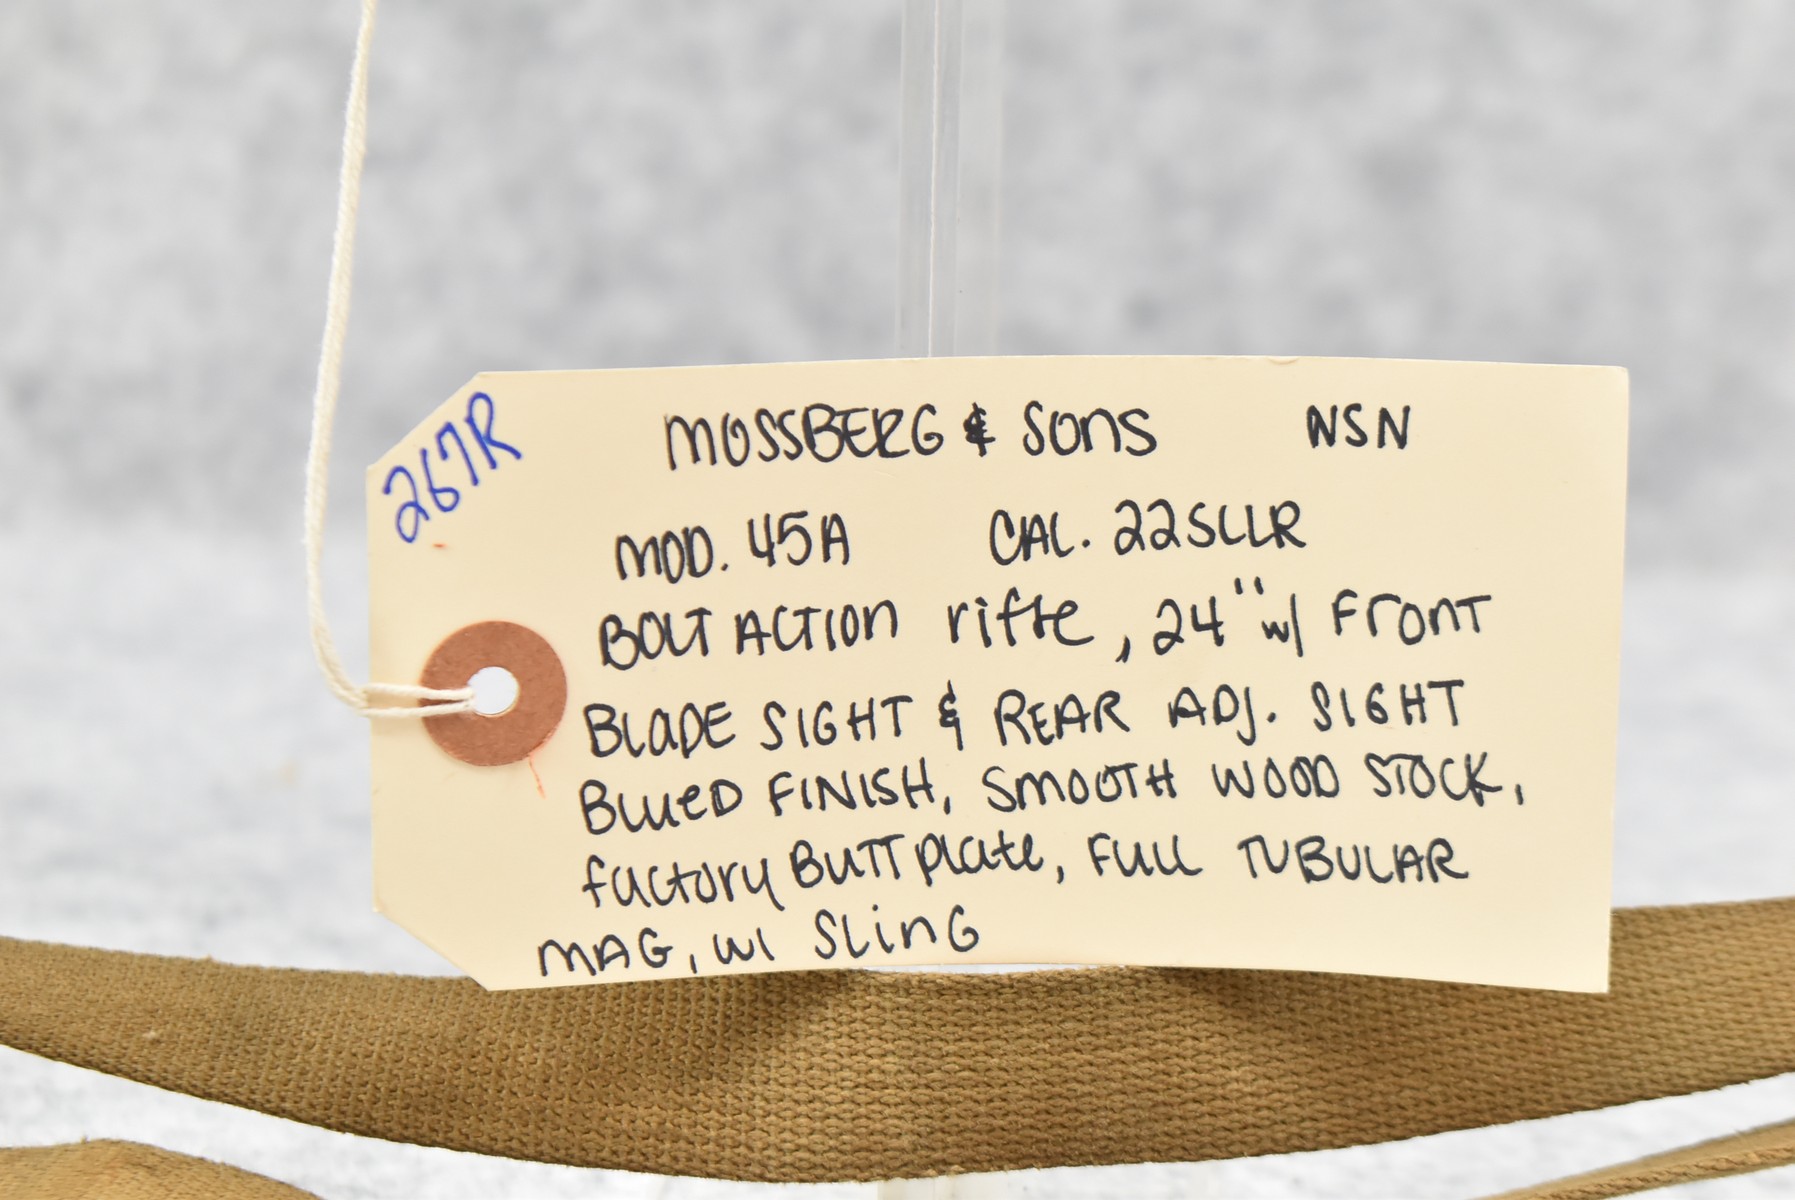 267R
MOSSBERG & SONS NSN
MOD. 45A CAL. 22SLLR
BOLT ACTION rifle, 24" w/ FRONT
BLADE SIGHT & REAR ADJ. SIGHT
BLUED FINISH, SMOOTH WOOD STOCK,
factory BUTT plate, FULL TUBULAR
MAG, w/ SLinG